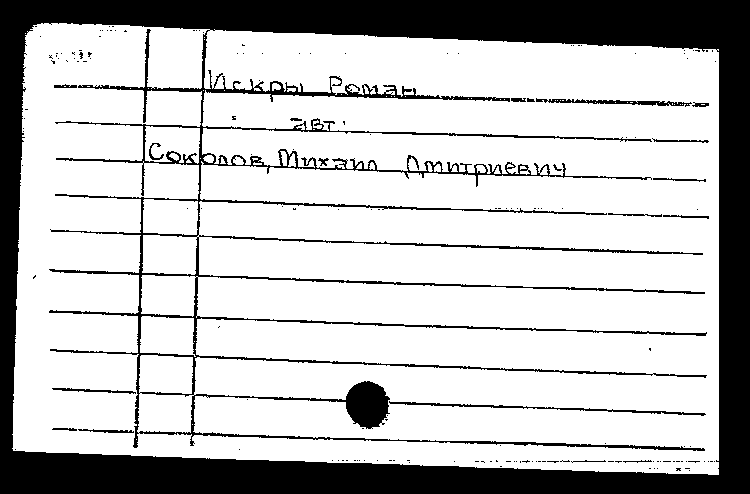 Искры Роман
авт:
Соколов, Михаил Дмитриевич